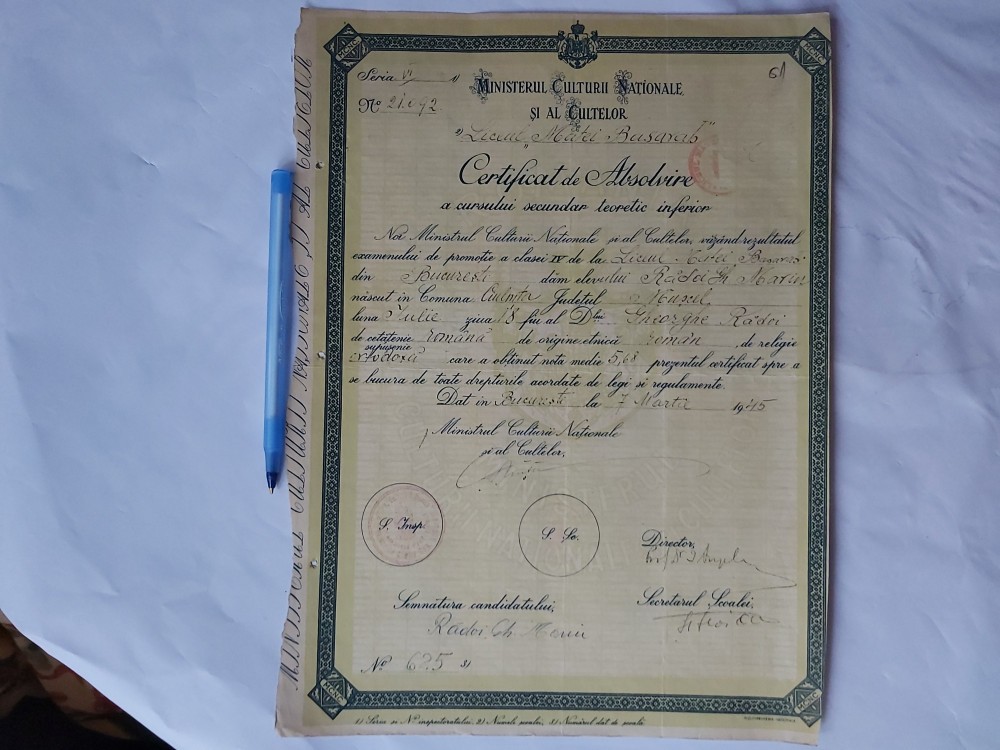 Seria VI 1)
61
MINISTERUL CULTURII NAȚIONALE
No 21.092
ȘI AL CULTELOR
2) Liceul „Matei Basarab”
Certificat de Absolvire
a cursului secundar teoretic inferior
Noi Ministrul Culturii Naționale și al Cultelor, văzând rezultatul
examenului de promoție a clasei IV de la Liceul Matei Basarab
din București dăm elevului Rădoi Gh Marin
născut în Comuna Județul Mușcel
luna Iulie ziua 18 fiu al Dlui Gheorghe Rădoi
de cetățenie română de origine etnică român, de religie
supușenie
ortodoxă care a obținut nota medie 5,68 prezentul certificat spre a
se bucura de toate drepturile acordate de legi și regulamente.
Dat în București la 7 Martie 1945
Ministrul Culturii Naționale
și al Cultelor,
S. Insp.
S. Șc.
Director,
Semnătura candidatului,
Secretarul Școalei,
Rădoi Gh. Marin
No 625 3)
1) Seria și No inspectoratului. 2) Numele școalei. 3) Numărul dat de școală